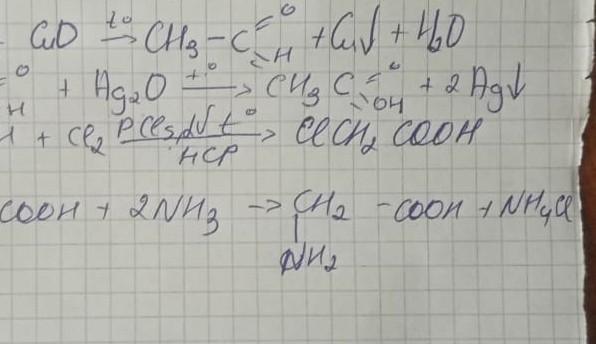 CuO t° → CH3 - C =O -H + Cu↓ + H2O
=O H + Ag2O t° → CH3 C =O -OH + 2 Ag↓
+ Cl2 PCl5, t° → ClCH2 COOH
COOH + 2NH3 → CH2 - COOH + NH4Cl
NH2